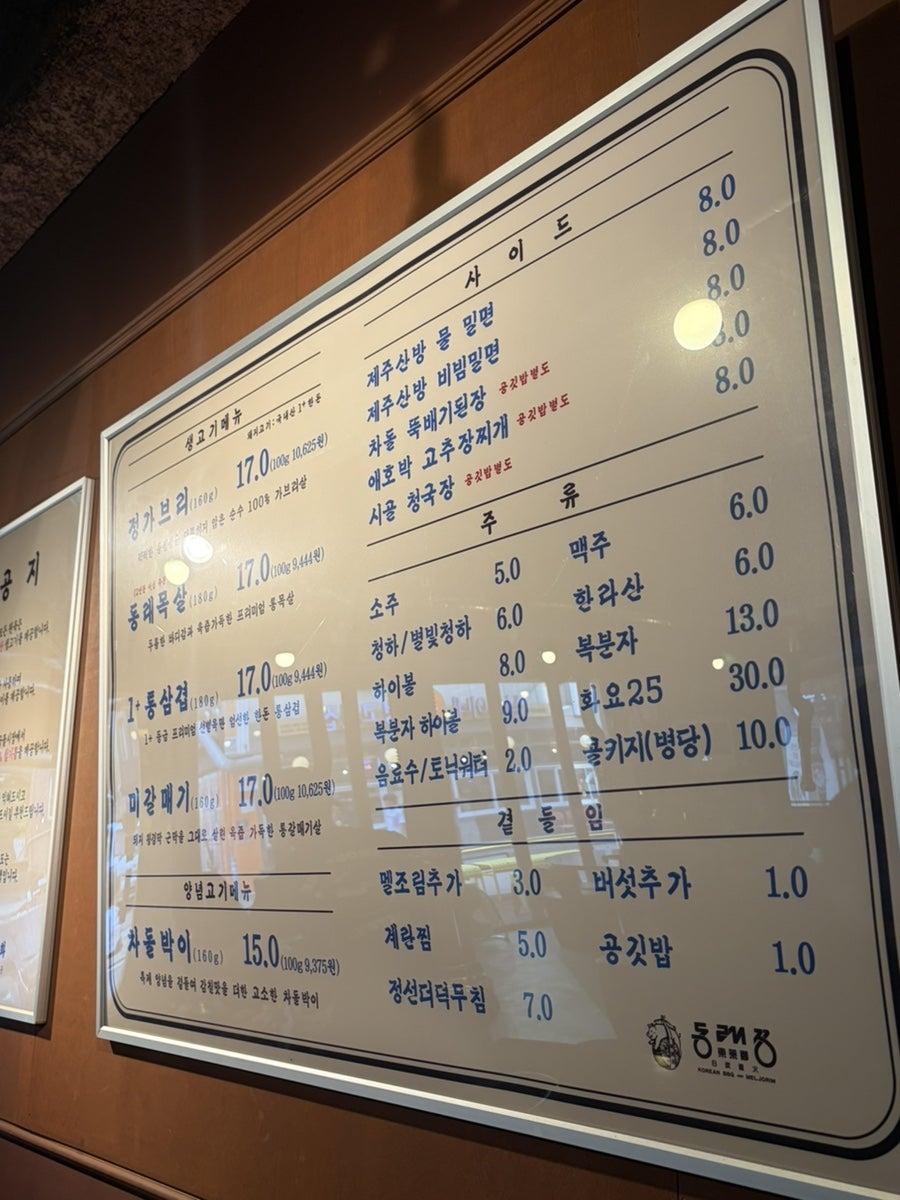 공 지
생고기메뉴
돼지고기:국내산 1+한돈
정가브리(160g) 17.0(100g 10,625원)
순수 100% 가브리살
동래목살(180g) 17.0(100g 9,444원)
두툼한 바디감과 육즙가득한 프리미엄 통목살
1+통삼겹(180g) 17.0(100g 9,444원)
1+ 등급 프리미엄 선발육만 엄선한 한돈 통삼겹
미갈매기(160g) 17.0(100g 10,625원)
돼지 횡경막 근막을 그대로 살린 육즙 가득한 통갈매기살
양념고기메뉴
차돌박이(160g) 15.0(100g 9,375원)
특제 양념을 곁들여 감칠맛을 더한 고소한 차돌박이
사이드
제주산방 물 밀면 8.0
제주산방 비빔밀면 8.0
차돌 뚝배기된장 공깃밥별도 8.0
애호박 고추장찌개 공깃밥별도 8.0
시골 청국장 공깃밥별도 8.0
주류
소주 5.0
청하/별빛청하 6.0
하이볼 8.0
복분자 하이볼 9.0
음료수/토닉워터 2.0
맥주 6.0
한라산 6.0
복분자 13.0
화요25 30.0
콜키지(병당) 10.0
곁들임
멜조림추가 3.0
계란찜 5.0
정선더덕무침 7.0
버섯추가 1.0
공깃밥 1.0
동래정
KOREAN BBQ — MELJORIM